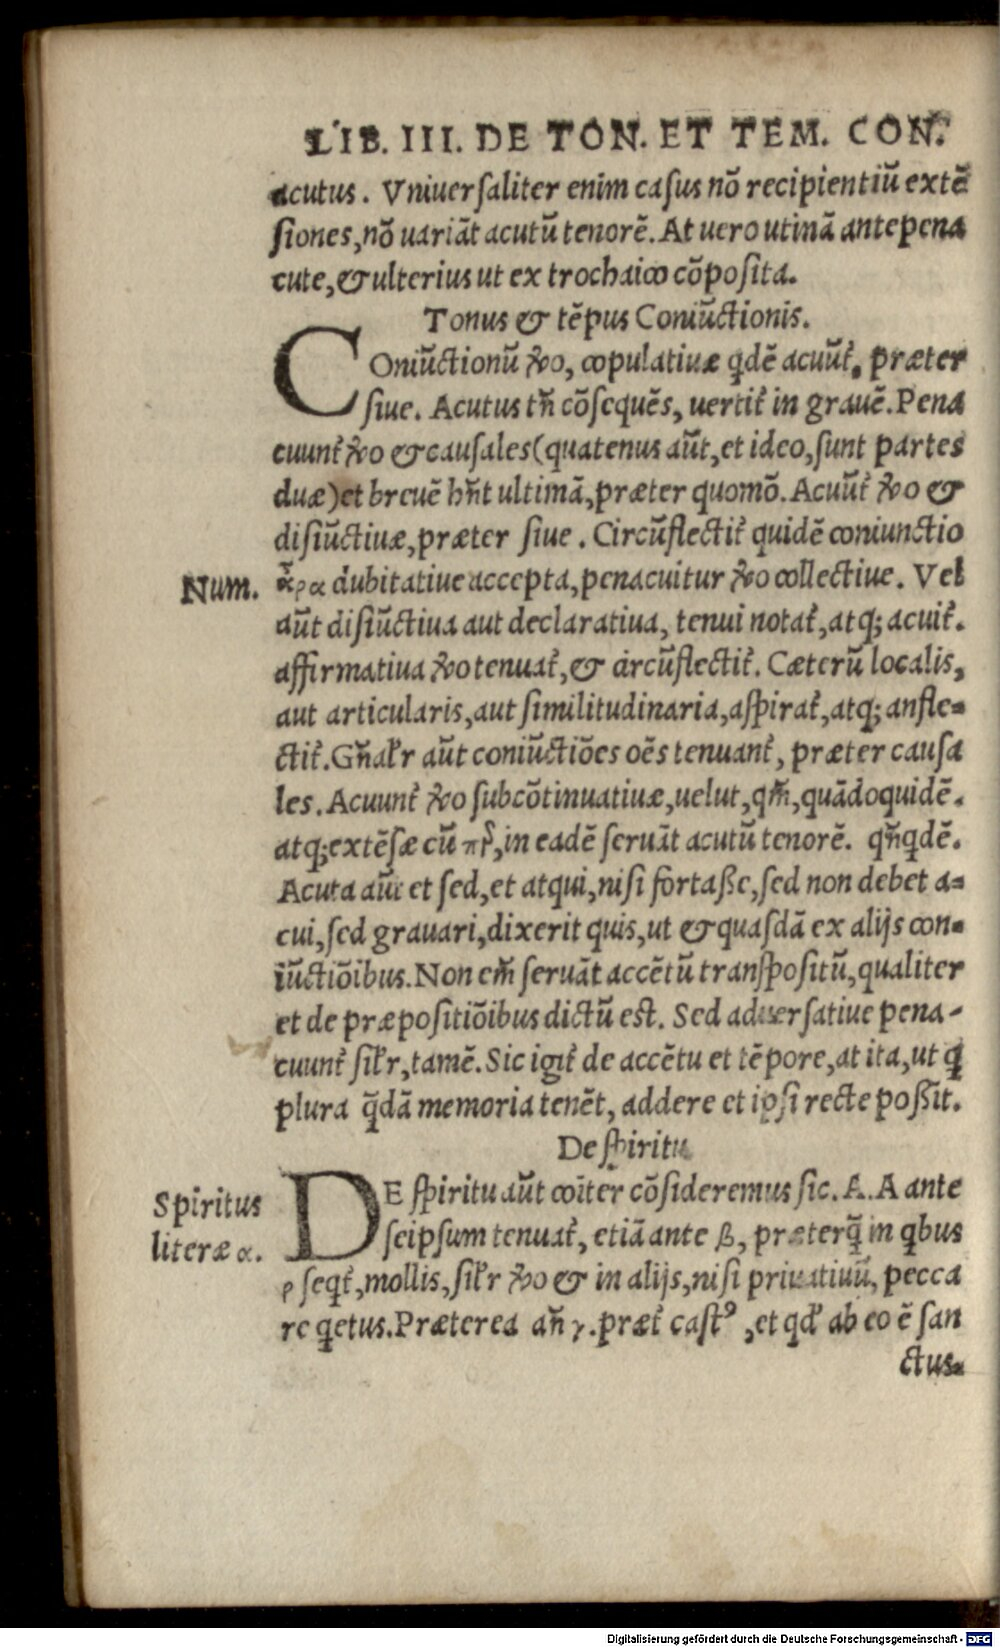 LIB. III. DE TON. ET TEM. CON.
acutus. Vniuersaliter enim casus nō recipientiū extē
siones, nō uariāt acutū tenorē. At uero utinā antepena
cute, & ulterius ut ex trochaico cōposita.
Tonus & tēpus Coniūctionis.
COniūctionū ꝟo, copulatiuæ qdē acuūt, præter
siue. Acutus tñ cōsequēs, uertit in grauē. Pena
cuunt ꝟo & causales (quatenus aūt, et ideo, sunt partes
duæ) et breuē hñt ultimā, præter quomō. Acuūt ꝟo &
disiūctiuæ, præter siue. Circūflectit quidē coniunctio
Num. ἆρα dubitatiue accepta, penacuitur ꝟo collectiue. Vel
aūt disiūctiua aut declaratiua, tenui notat, atq; acuit.
affirmatiua ꝟo tenuat, & circūflectit. Cæterū localis,
aut articularis, aut similitudinaria, aspirat, atq; anfle=
ctit. Gñalr aūt coniūctiōes oēs tenuant, præter causa
les. Acuunt ꝟo subcōtinuatiuæ, uelut, qm̄, quādoquidē.
atq; extēsæ cū πρ, in eadē seruāt acutū tenorē. qñqdē.
Acuta aūt et sed, et atqui, nisi fortaße, sed non debet a=
cui, sed grauari, dixerit quis, ut & quasdā ex alijs con=
iūctiōibus. Non em̄ seruāt accētū transpositū, qualiter
et de præpositiōibus dictū est. Sed aduersatiue pena-
cuunt silr, tamē. Sic igit de accētu et tēpore, at ita, ut q
plura q̄dā memoria tenēt, addere et ipsi recte poßīt.
De spiritu
Spiritus
literæ α.
DE spiritu aūt coīter cōsideremus sic. A. A ante
seipsum tenuat, etiā ante β, præterq̄ in qbus
ρ seqt, mollis, silr ꝟo & in alijs, nisi priuatiuū, pecca
re qetus. Præterea añ γ. præt castꝰ, et qd ab eo ē san
ctus.
Digitalisierung gefördert durch die Deutsche Forschungsgemeinschaft - DFG